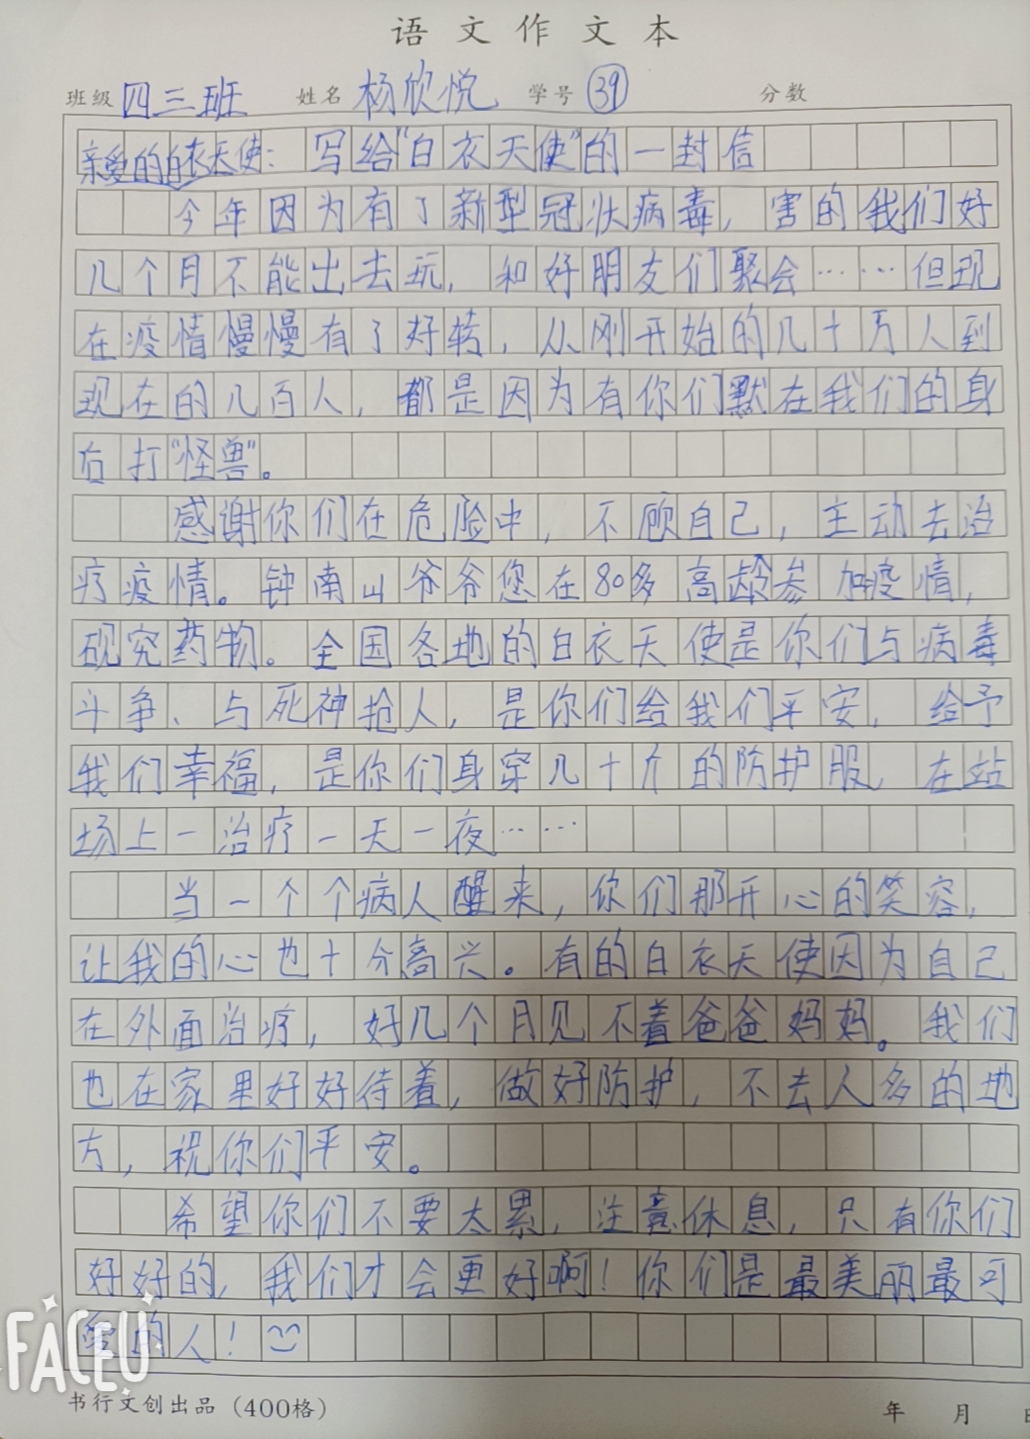 语文作文本
班级 四三班 姓名 杨欣悦 学号 39 分数
亲爱的白衣天使： 写给“白衣天使”的一封信
今年因为有了新型冠状病毒，害的我们好
几个月不能出去玩，和好朋友们聚会……但现
在疫情慢慢有了好转，从刚开始的几十万人到
现在的几百人，都是因为有你们默在我们的身
后打“怪兽”。
感谢你们在危险中，不顾自己，主动去治
疗疫情。钟南山爷爷您在80多高龄参加疫情，
研究药物。全国各地的白衣天使是你们与病毒
斗争、与死神抢人，是你们给我们平安，给予
我们幸福，是你们身穿几十斤的防护服，在站
场上一治疗一天一夜……
当一个个病人醒来，你们那开心的笑容，
让我的心也十分高兴。有的白衣天使因为自己
在外面治疗，好几个月见不着爸爸妈妈。我们
也在家里好好待着，做好防护，不去人多的地
方，祝你们平安。
希望你们不要太累，注意休息，只有你们
好好的，我们才会更好啊！你们是最美丽最可
爱的人！
FACEU
书行文创出品（400格） 年 月 日